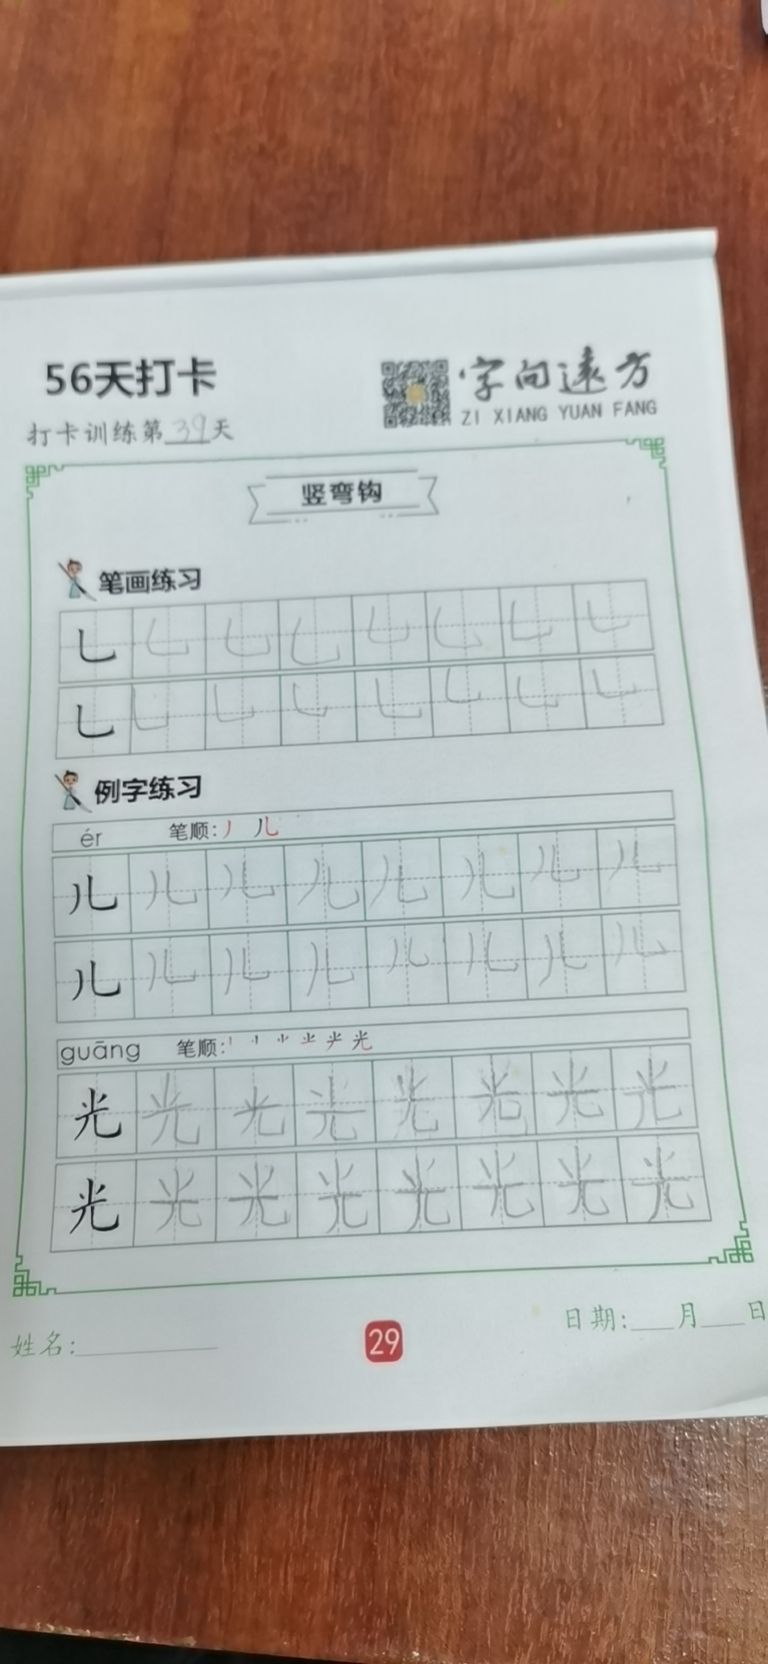 56天打卡
字向遠方
ZI XIANG YUAN FANG
打卡训练第39天
竖弯钩
笔画练习
乚 乚 乚 乚 乚 乚 乚 乚
乚 乚 乚 乚 乚 乚 乚 乚
例字练习
ér 笔顺: 丿 儿
儿 儿 儿 儿 儿 儿 儿 儿
儿 儿 儿 儿 儿 儿 儿 儿
guāng 笔顺:
光 光 光 光 光 光 光 光
光 光 光 光 光 光 光 光
姓名:
29
日期:___月___日